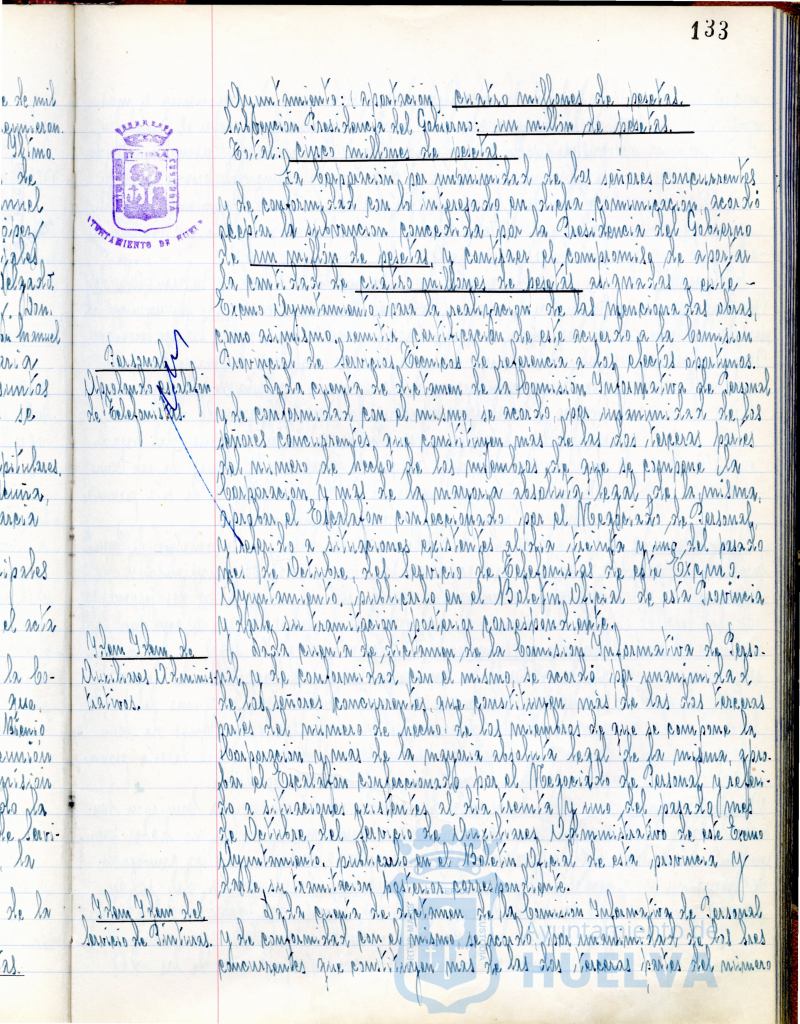 133
Ayuntamiento: (aportación) cuatro millones de pesetas.
Subvención Presidencia del Gobierno: un millón de pesetas.
Total: cinco millones de pesetas.
La Corporación por unanimidad de los señores concurrentes
y de conformidad con lo interesado en dicha comunicación, acordó
aceptar la subvención concedida por la Presidencia del Gobierno
de un millón de pesetas y contraer el compromiso de aportar
la cantidad de cuatro millones de pesetas asignadas a este
Excmo Ayuntamiento, para la realización de las mencionadas obras,
como asimismo, remitir certificación de este acuerdo a la Comisión
Provincial de Servicios Técnicos de referencia a los efectos oportunos.
Personal
Aprobando escalafón
de Telefonistas.
Dada cuenta de dictamen de la Comisión Informativa de Personal
y de conformidad con el mismo, se acordó, por unanimidad de los
señores concurrentes, que constituyen más de las dos terceras partes
del número de hecho de los miembros de que se compone la
Corporación, y mas de la mayoria absoluta legal de la misma,
aprobar el Escalafón confeccionado por el Negociado de Personal,
y referido a situaciones existentes al dia treinta y uno del pasado
mes de Octubre, del Servicio de Telefonistas de este Excmo.
Ayuntamiento, publicarlo en el Boletín Oficial de esta Provincia
y darle su tramitación posterior correspondiente.
Idem Idem de
Auxiliares Adminis-
trativos.
Dada cuenta de dictamen de la Comisión Informativa de Perso-
nal, y de conformidad con el mismo, se acordó por unanimidad
de los señores concurrentes, que constituyen más de las dos terceras
partes del número de hecho de los miembros de que se compone la
Corporación y mas de la mayoria absoluta legal de la misma, apro-
bar el Escalafón confeccionado por el Negociado de Personal y referi-
do a situaciones existentes al día treinta y uno del pasado mes
de Octubre, del Servicio de Auxiliares Administrativo de este Excmo
Ayuntamiento, publicarlo en el Boletín Oficial de esta provincia y
darle su tramitación posterior correspondiente.
Idem Idem del
Servicio de Pinturas.
Dada cuenta de dictamen de la Comisión Informativa de Personal
y de conformidad con el mismo se acordó, por unanimidad de los Sres
concurrentes que constituyen más de las dos terceras partes del número
AYUNTAMIENTO DE HUELVA
Ayuntamiento de
HUELVA